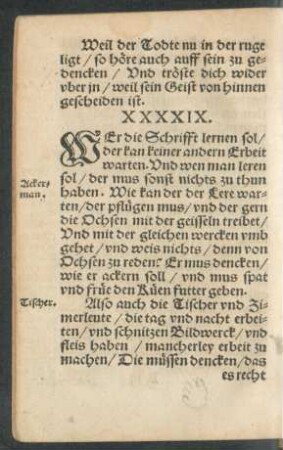 Weil der Todte nu in der ruge
ligt / so höre auch auff sein zu ge-
dencken / Vnd tröste dich wider
vber jn / weil sein Geist von hinnen
gescheiden ist.
XXXXIX.
WEr die Schrifft lernen sol/
der kan keiner andern Erbeit
warten. Vnd wen man leren
sol / der mus sonst nichts zu thun
Acker-
man.
haben. Wie kan der der Lere war-
ten/der pflügen mus/vnd der gern
die Ochsen mit der geisseln treibet/
Vnd mit der gleichen wercken vmb
gehet / vnd weis nichts / denn von
Ochsen zu reden? Er mus dencken/
wie er ackern soll / vnd mus spat
vnd früe den Küen futter geben.
Tischer.
Also auch die Tischer vnd Zi-
merleute / die tag vnd nacht erbei-
ten/vnd schnitzen Bildwerck/vnd
fleis haben / mancherley erbeit zu
machen / Die müssen dencken/das
es recht